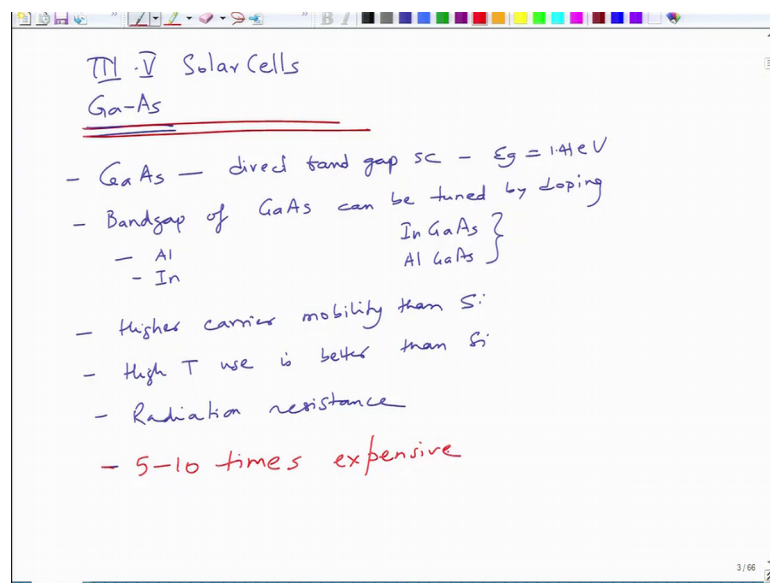 III-V Solar Cells
Ga-As
- GaAs — direct band gap sc - Eg = 1.41 eV
- Bandgap of GaAs can be tuned by doping
— Al
- In
InGaAs }
AlGaAs }
- Higher carrier mobility than Si
- High T use is better than Si
- Radiation resistance
- 5-10 times expensive
3 / 66